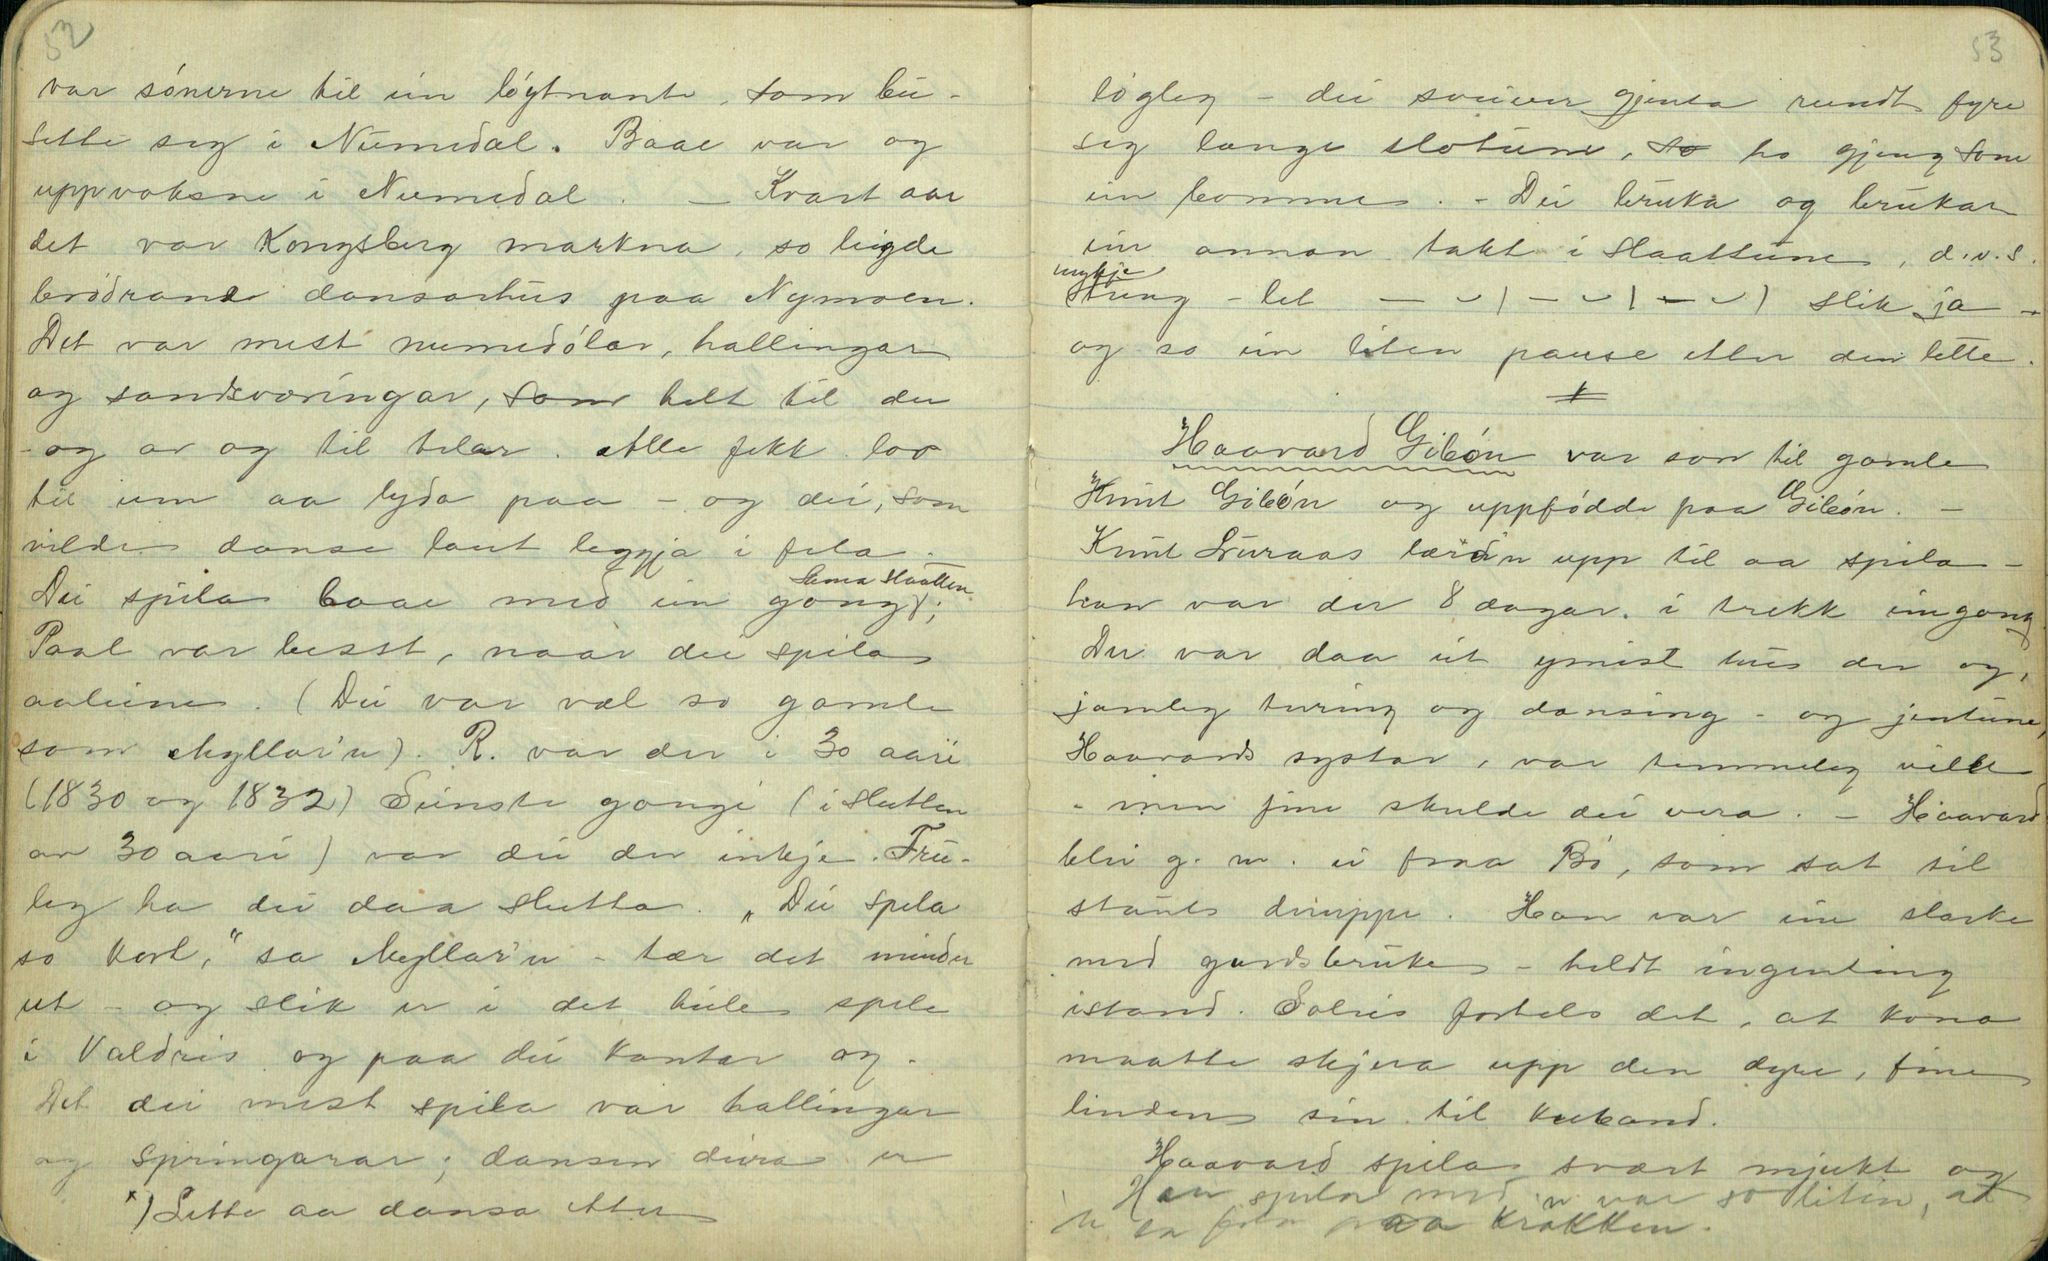 52
var sónerne til ein löytnante, som bu-
sette seg i Numedal. Baae var og
uppvaksne i Numedal. – Kvart aar
det var Kongsberg marknad, so leigde
brödrane dansarhus paa Nymoen.
Det var mest numedólar, hallingar
og sandsværingar, som helt til der
– og av og til telar. Alle fekk lov
til um aa lyda paa – og dei, som
vilde danse laut leggja i fela.
Dei spila baae med ein gong; sama slaatten
Paal var besst, naar dei spila
aaleine. (Dei var væl so gamle
som Myllar'n). R. var der i 30 aari
(1830 og 1832) Seinste gongi (i slutten
av 30 aari) var dei der inkje. Tru-
leg ha dei daa slutta. "Dei spela
so kort," sa Myllar'n – tær det mindre
ut – og slik er i det heile spele
i Valdris og paa dei kantar og.
Det dei mest spila var hallingar
og springarar; dansen deira er
*) Lette aa dansa etter
53
løgleg – dei sveiver gjenta rundt fyre
seg lange slotune, so ho gjeng som
ein  . – Dei bruka og brukar
ein annan takt i slaattune, d.v.s.
mykje
tung – let — ⏑ | — ⏑ | — ⏑ | slik ja –
og so ein liten pause etter den lette.
Haavard Gibón var son til gamle
Knut Gibón og uppfödde paa Gibón. –
Knut Luraas lærde'n upp til aa spila –
han var der 8 dagar i trekk eingong
Der var daa eit ymist hus der og,
jamleg turing og dansing – og jentune,
Haavards systar, var temmeleg ville
– men fine skulde dei vera. – Haavard
blei g. m. ei fraa Bö, som sat til
 . Han var ein slarke
med gardsbruke – heldt ingenting
istand. Solveis fortels det, at kona
maatte skjera upp den dyre, fine
linden sin til kuband.
Haavard spila svært mjukt og
Han spila med'n var so liten, at
'n sa fela paa krakken.